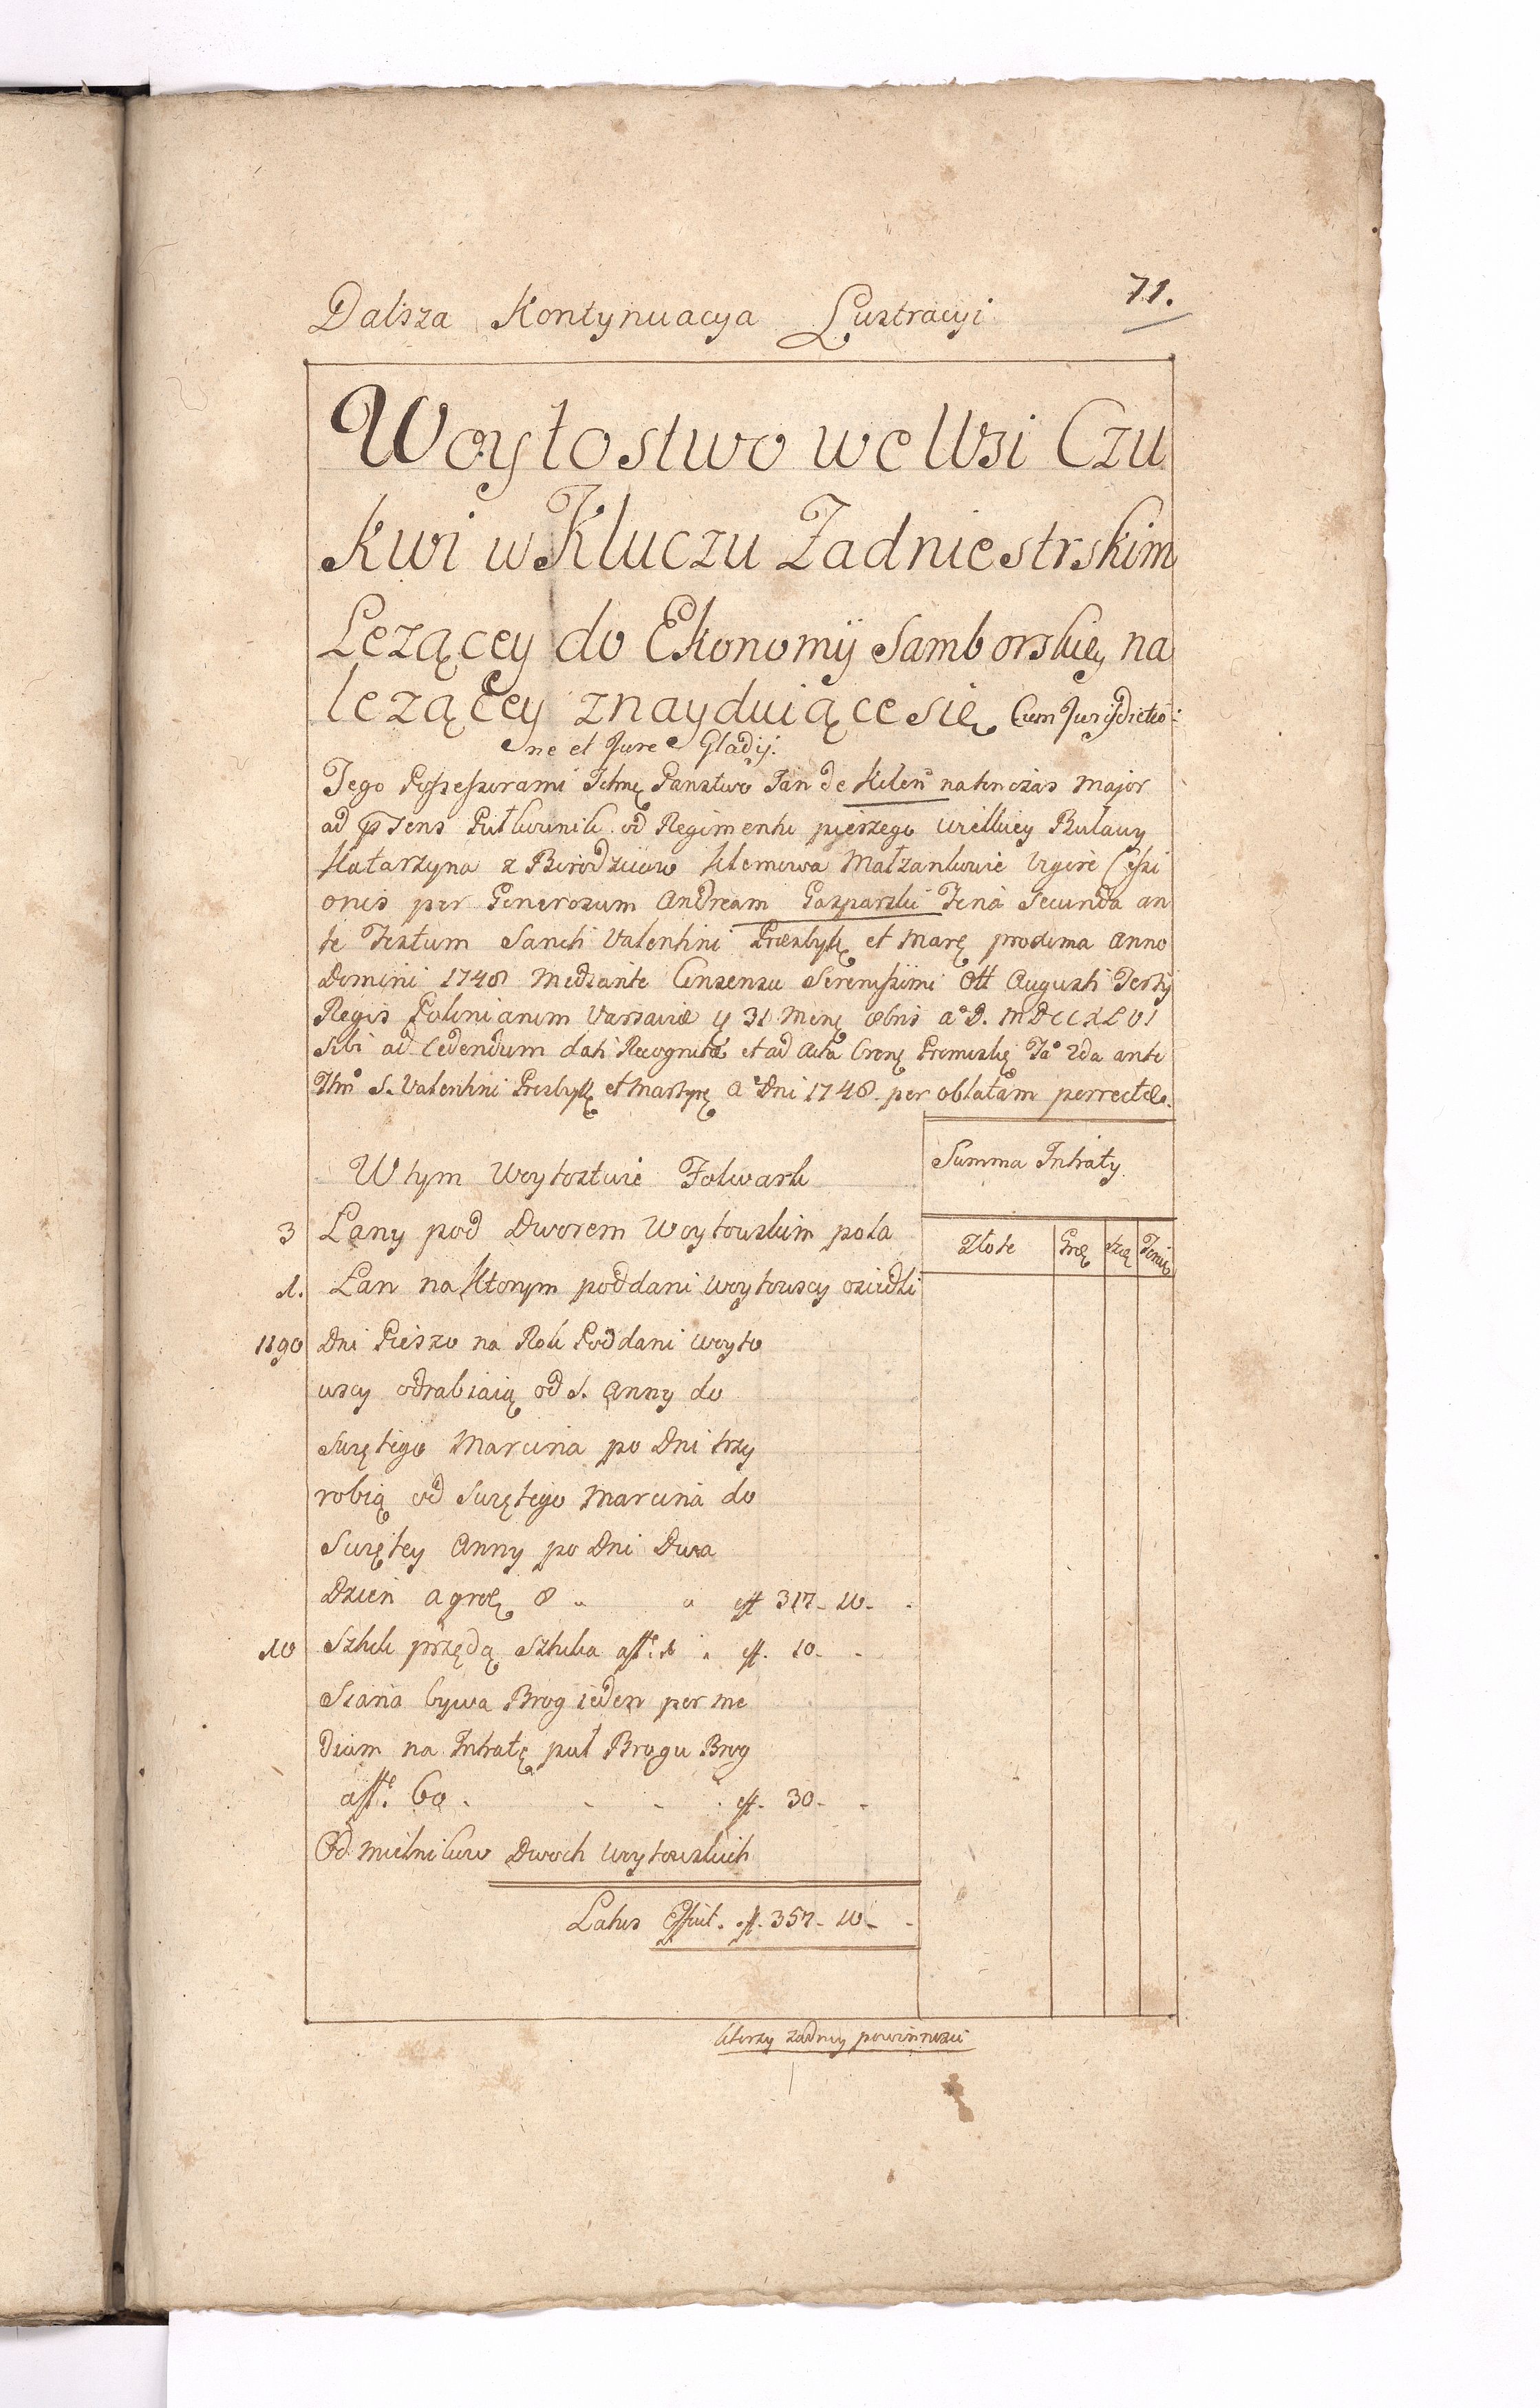 71.
Dalsza Kontynuacya Lustracyi
Woytostwo we Wsi Czu
kwi w Kluczu Zadniestrskim
Leżącey do Ekonomij Samborskiey na
leżącey znayduiące się Cum Jurisdictio
ne et Jure Gladij.
Tego Possessorami Ichmę Panstwo Jan de Klen natenczas Major
ad Pułkownik od Regimentu pieszego wielkiey Buławy
Katarzyna z Klemowa Małzankowie Vigore Cessi
onis per Generosum Andream Gasparski Feria Secunda an
te Festum Sancti Valentini Presbyt et Mar proxima Anno
Domini 1748 Mediante Consensu Serenissimi Augusti Tertij
Regis Poloniarum Varsaviæ 31 Mens 8bris a°D. MDCCXLVI
Sibi ad Cedendum dati Recognita et ad Acta ante
S. Valentini Presbyt et Martyr A°Dni 1748. per oblatam porrectæ.
Summa Intraty
W tym Woytostwie Folwark
3 Lany pod Dworem Woytowskim pola
Złote Gro Sze
1. Łan na ktorym poddani woytowscy osiedli
1190 Dni Pieszo na Rok Poddani woyto
wscy odrabiaią od S. Anny do
Swiętego Marcina po Dni trzy
robią od Swiętego Marcina do
Swiętey Anny po Dni Dwa
Dzien a gro 8 " " ff 317 - 10 - -
10 Sztuk przędą Sztuka a ff. 1 " ff. 10 - -
Siana bywa Brog ieden per me
dium na Intratę puł Brogu Brog
a ff. 60. - - . ff. 30 - -
Od Mielnikow Dwoch woytowskich
Latus Efficit. ff. 357 - 10 - -
ktorzy zadney powinnosci